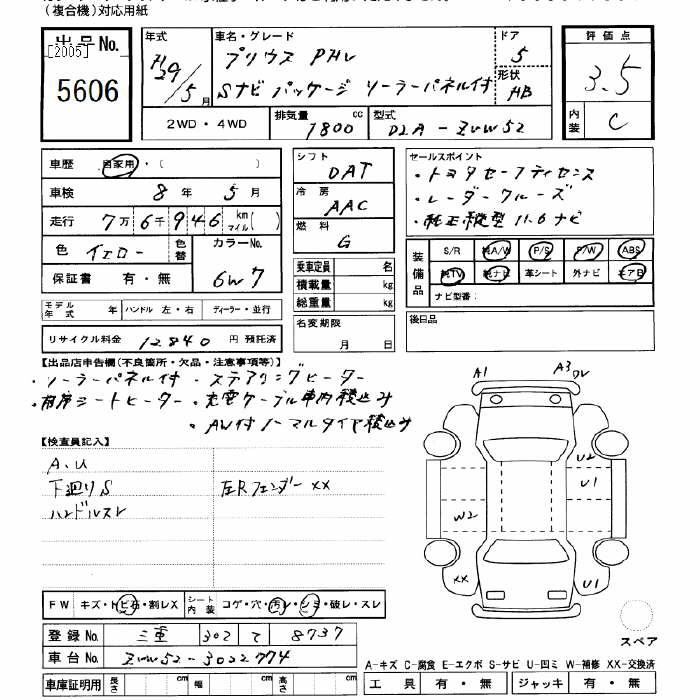 (複合機)対応用紙
出品No. [2005] 5606
年式 H29/5月
車名・グレード プリウス PHV
Sナビパッケージ ソーラーパネル付
ドア 5
形状 HB
評価点 3.5
内装 C
2WD・4WD
排気量 1800 cc
型式 DLA-ZVW52
車歴 自家用・( )
車検 8年 5月
走行 7万6千946 km マイル( )
色 イエロー 色替
カラーNo. 6W7
保証書 有・無
モデル年式 年 ハンドル 左・右 ディーラー・並行
リサイクル料金 12840 円 預託済
シフト DAT
冷房 AAC
燃料 G
乗車定員 名
積載量 kg
総重量 kg
名変期限 月 日
セールスポイント
・トヨタセーフティセンス
・レーダークルーズ
・純正縦型11.6ナビ
装備品 S/R 純A/W P/S P/W ABS
純TV 純ナビ 革シート 外ナビ エアB
ナビ型番:
後日品
【出品店申告欄(不良箇所・欠品・注意事項等)】
・ソーラーパネル付 ・ステアリングヒーター
・前席シートヒーター ・充電ケーブル車内積込み
・AW付ノーマルタイヤ積込み
【検査員記入】
A.U
下廻りS 左Rフェンダー XX
ハンドルスレ
A1 A3 U2 U1 W2 XX U1
スペア
FW キズ・トビ石・割レX シート内装 コゲ・穴・汚レ・シミ・破レ・スレ
登録No. 三重 302 て 8737
車台No. ZVW52-3022774
車庫証明用 長さ cm 幅 cm 高さ cm
A-キズ C-腐食 E-エクボ S-サビ U-凹ミ W-補修 XX-交換済
工具 有・無 ジャッキ 有・無